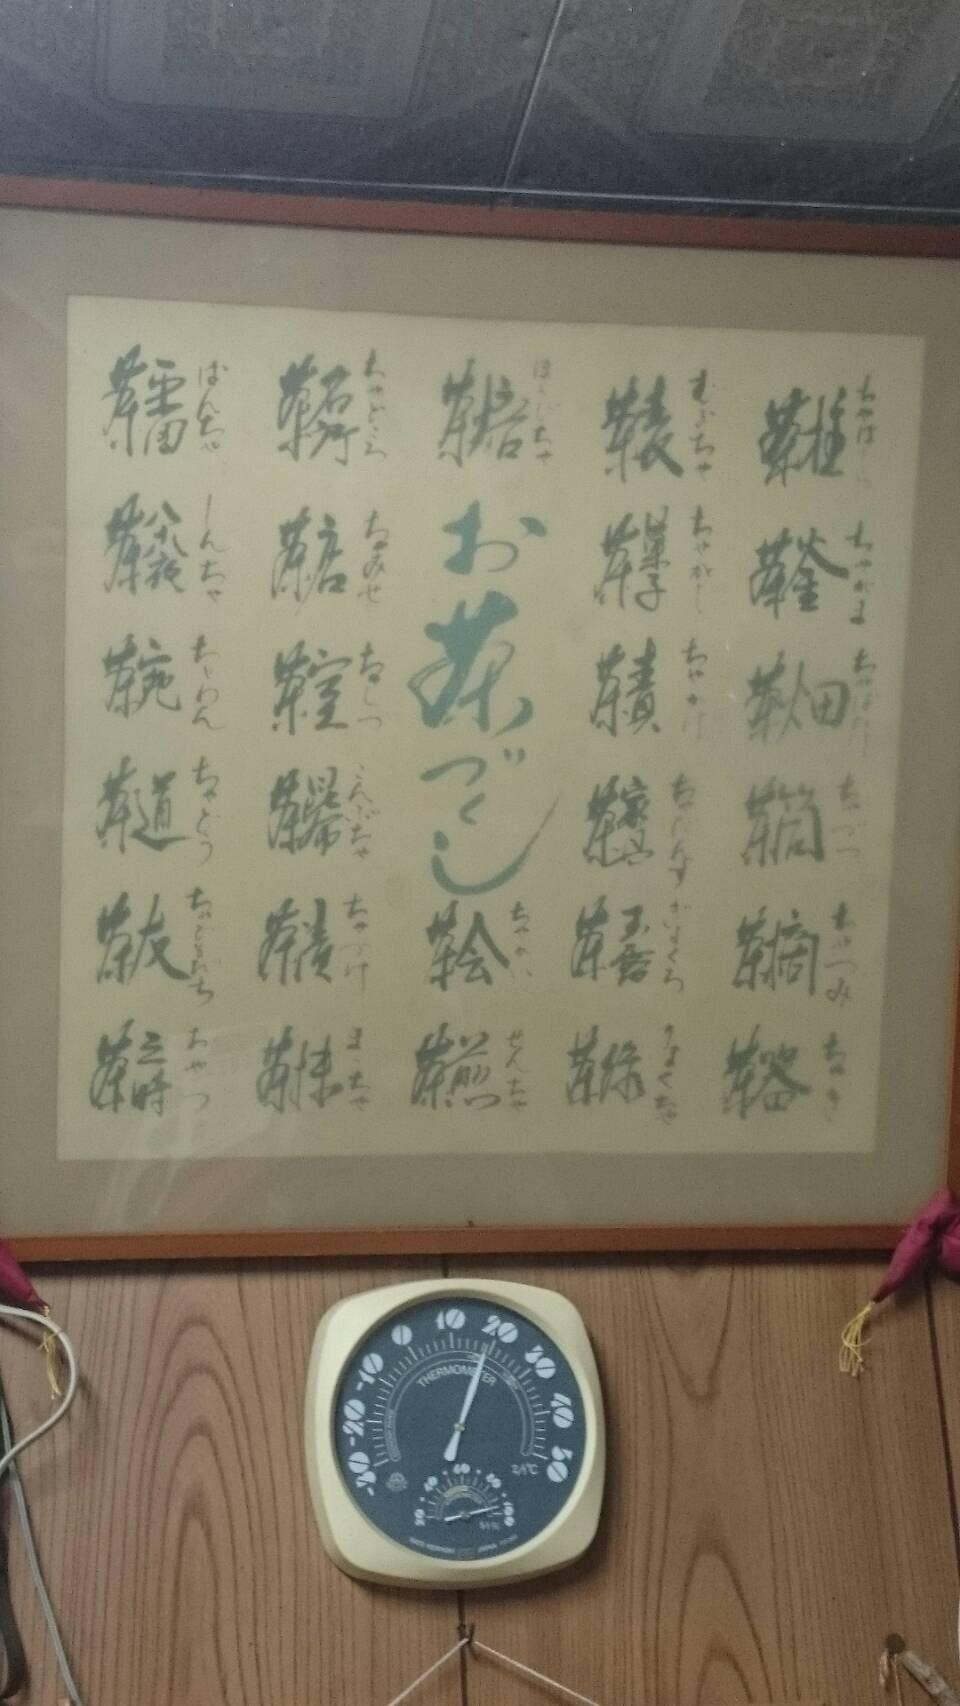 茶柱 ちゃばしら
茶釜 ちゃがま
茶畑 ちゃばたけ
茶筒 ちゃづつ
茶摘 ちゃつみ
茶器 ちゃき
むぎちゃ
茶菓子 ちゃがし
ちゃかけ
茶家具 ちゃだんす
茶玉露 ぎょくろ
茶緑 りょくちゃ
ほうじちゃ
お茶づくし
茶会 ちゃかい
茶煎 せんちゃ
ちゃどころ
茶店 ちゃみせ
茶室 ちゃしつ
茶昆布 こんぶちゃ
茶漬 ちゃづけ
茶抹 まっちゃ
ばんちゃ
茶八十八夜 しんちゃ
ちゃわん
茶道 ちゃどう
茶友 ちゃどもだち
茶三時 おやつ
-30 -20 -10 0 10 20 30 40 50
THERMOMETER
20 40 60 80 100
JAPAN